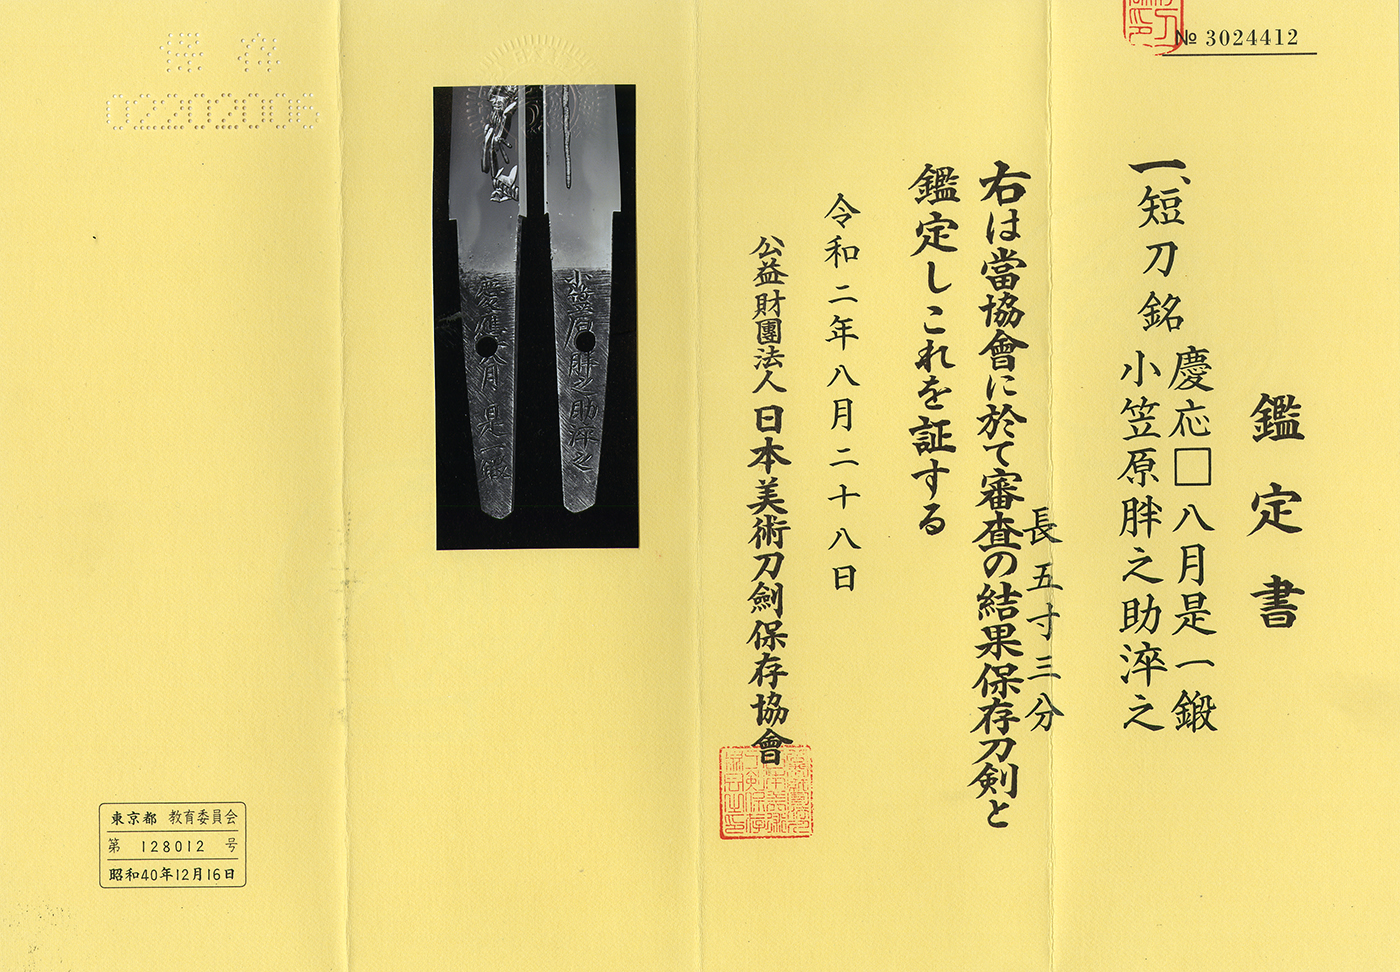 № 3024412
鑑定書
一、短刀銘
慶応□八月是一鍛
小笠原胖之助淬之
長五寸三分
右は當協會に於て審査の結果保存刀剣と
鑑定しこれを証する
令和二年八月二十八日
公益財團法人日本美術刀劍保存協會
小笠原胖之助淬之
慶應 八月是一鍛
保存
02202006
東京都 教育委員会
第 128012 号
昭和40年12月16日